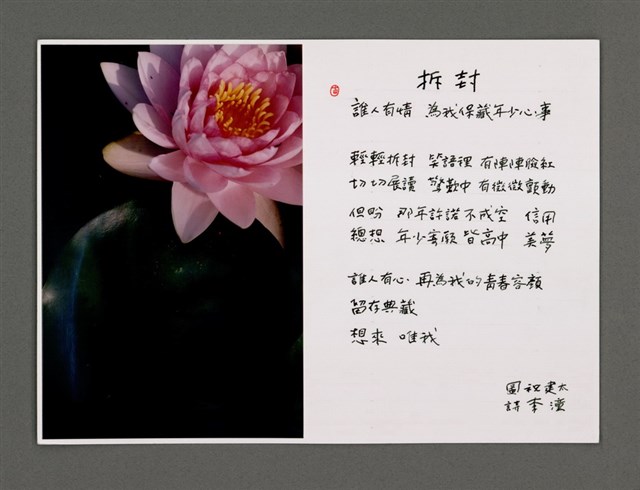 拆封
誰人有情 為我保藏年少心事
輕輕拆封 笑語裡 有陣陣臉紅
切切展讀 驚歎中 有微微顫動
但盼 那年許諾不成空 信用
總想 年少寄願皆高中 美夢
誰人有心 再為我的青春容顏
留存典藏
想來 唯我
圖 祝建太
詩 李潼